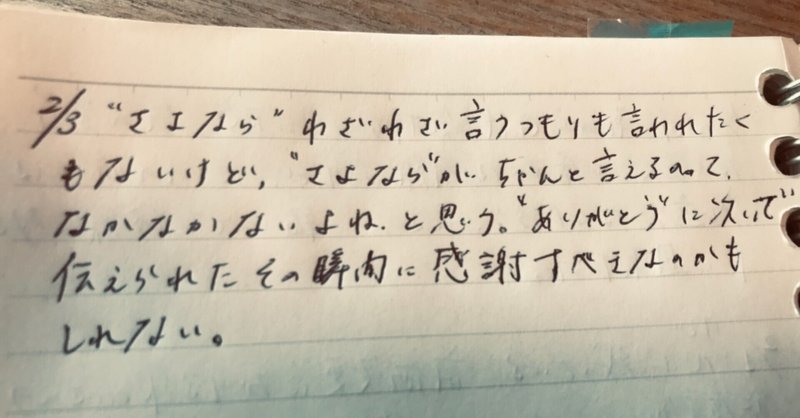 2/3 "さよなら"わざわざ言うつもりも言われたく
もないけど、"さよなら"がちゃんと言えるのって、
なかなかないよね、と思う。"ありがとう"に次いで
伝えられたその瞬間に感謝すべきなのかも
しれない。